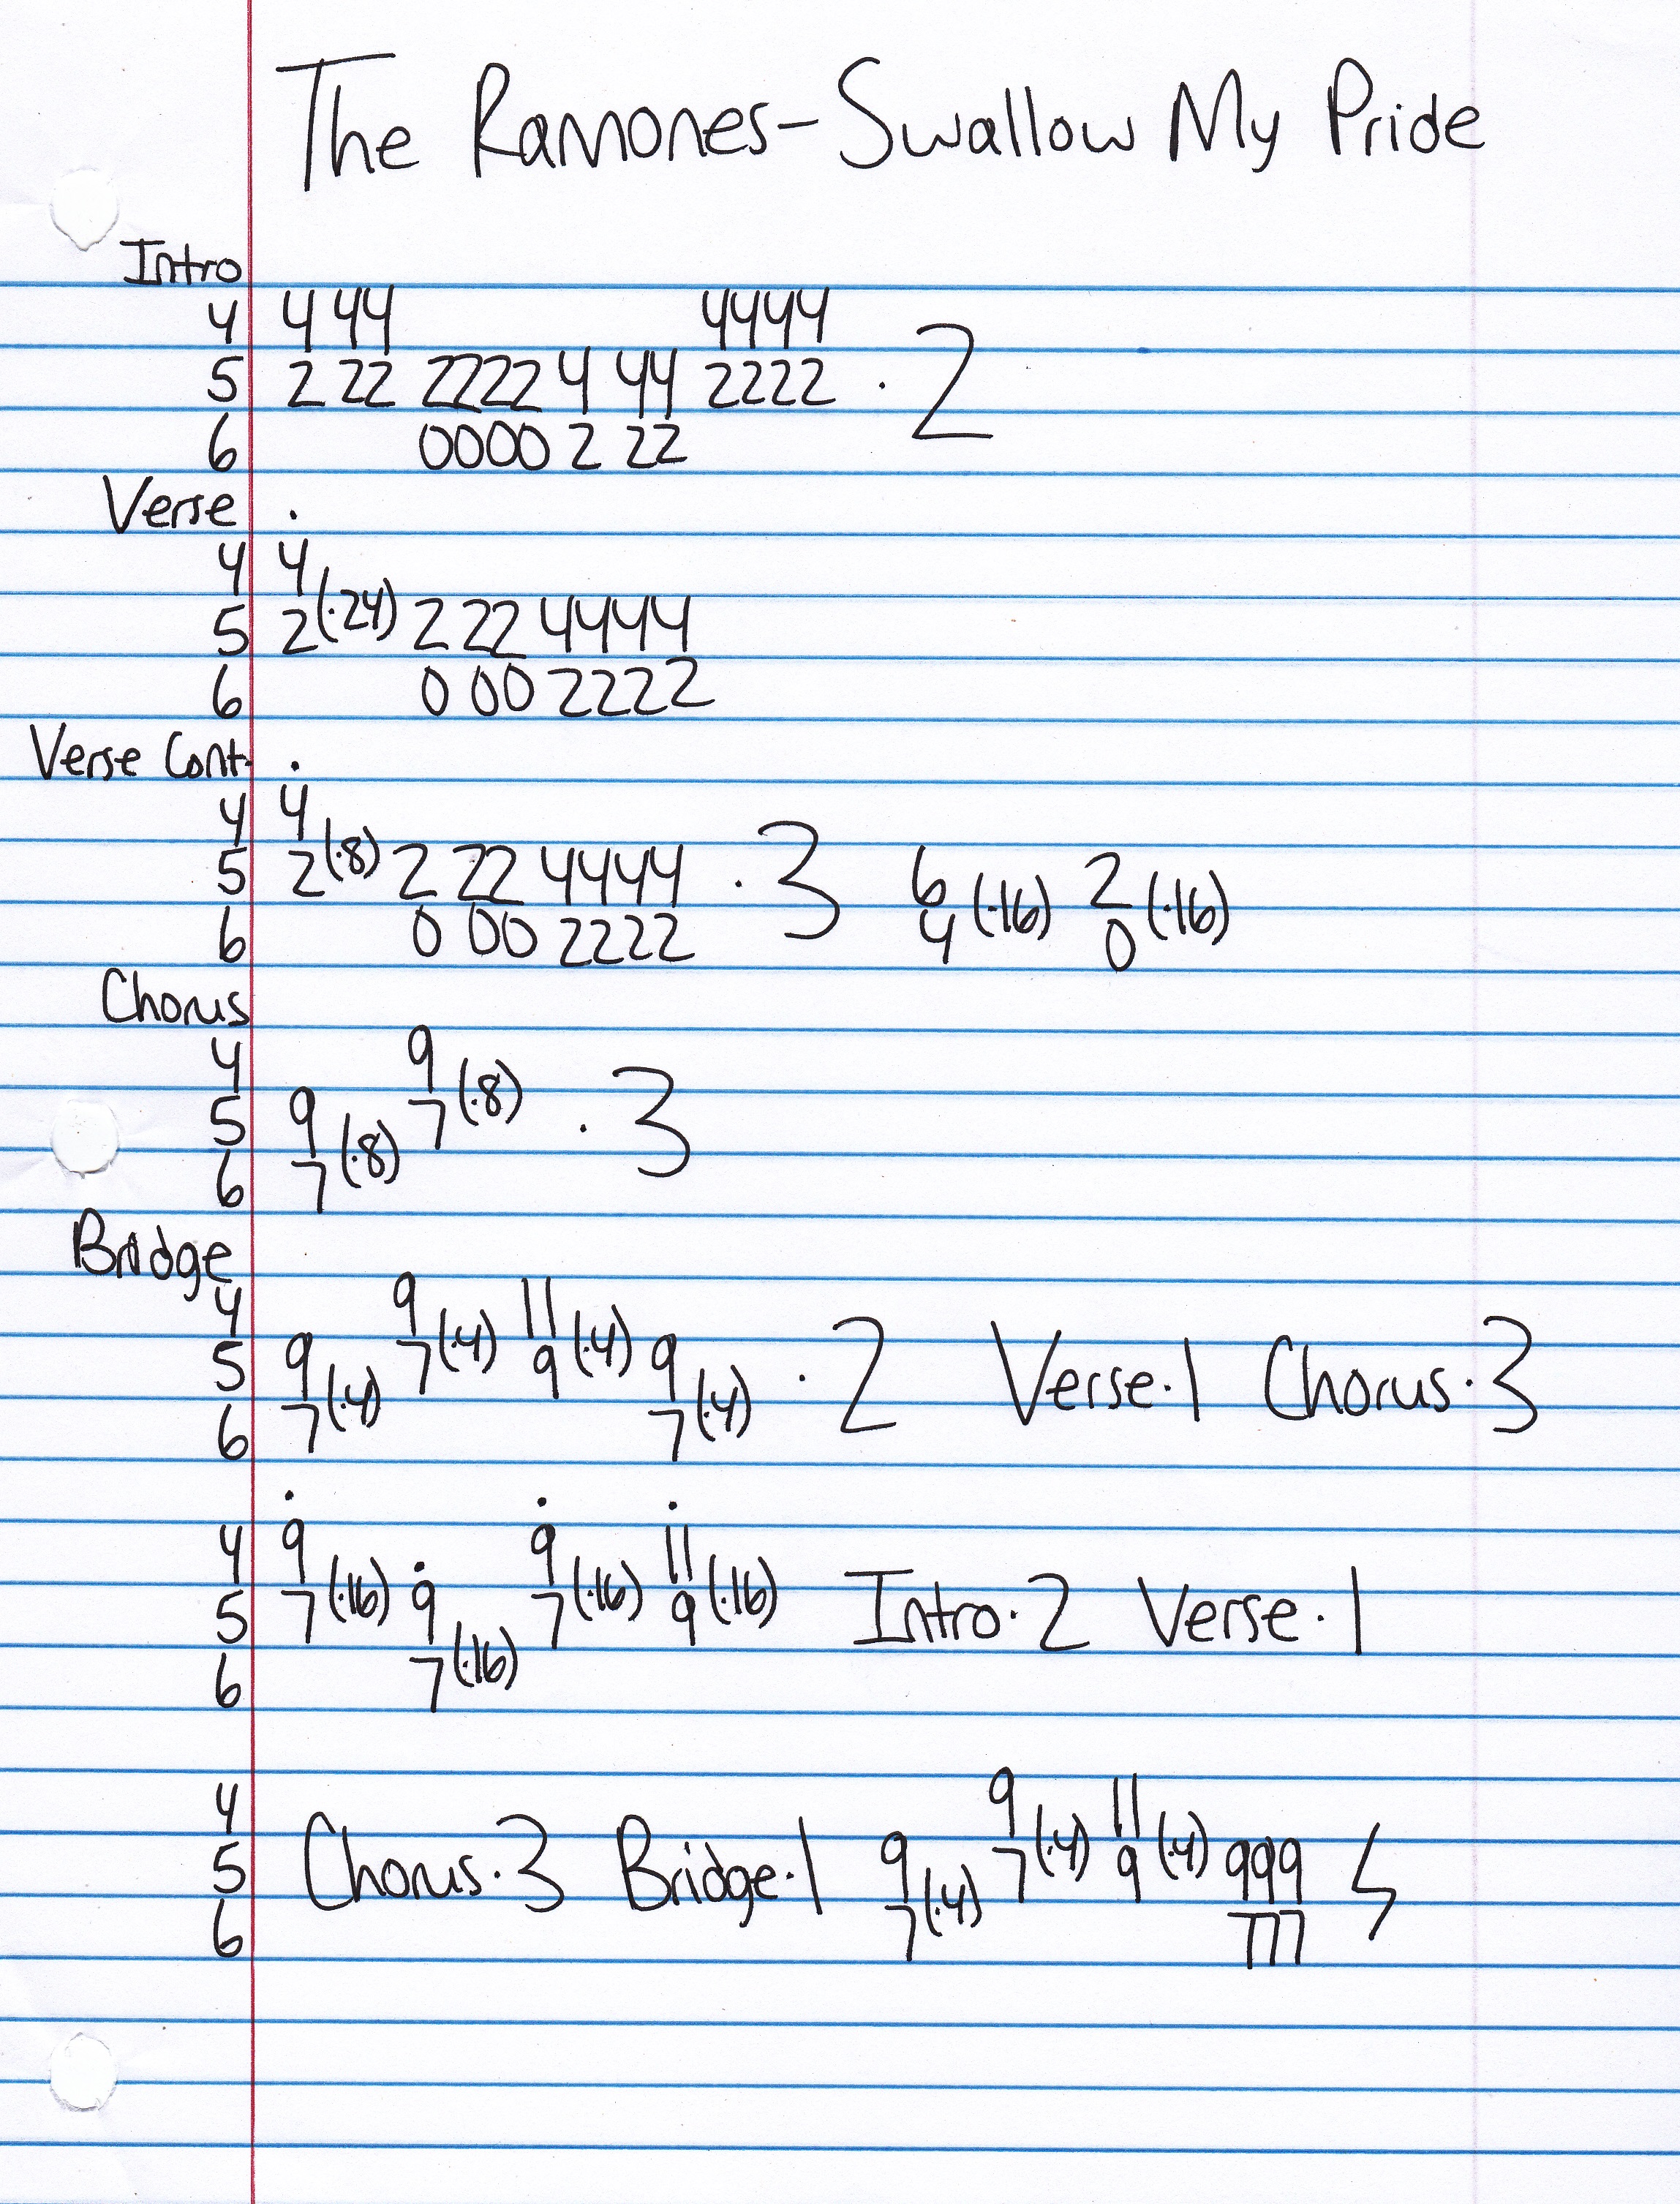 The Ramones- Swallow My Pride
Intro
4 4 44 4444
5 2 22 2222 4 44 2222 · 2
6 0000 2 22
Verse ·
4 4
5 2(·24) 2 22 4444
6 0 00 2222
Verse Cont. ·
4 4
5 2(·8) 2 22 4444 · 3 6 2
6 0 00 2222 4(·16) 0(·16)
Chorus
4 9
5 9 7(·8) · 3
6 7(·8)
Bridge
4 9 11
5 9 7(·4) 9(·4) 9 · 2 Verse·1 Chorus·3
6 7(·4) 7(·4)
· · ·
4 9 · 9 11
5 7(·16) 9 7(·16) 9(·16) Intro·2 Verse·1
6 7(·16)
4 9 11
5 Chorus·3 Bridge·1 9 7(·4) 9(·4) 999
6 7(·4) 777